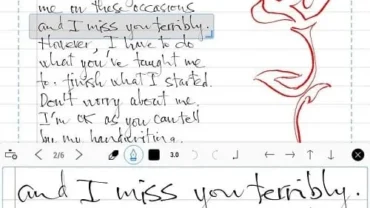 me on these occasions
and I miss you terribly.
However, I have to do
what you've taught me
to : finish what I started.
Don't worry about me.
I'm OK as you can tell
by my handwriting.
2/6
3.0
and I miss you terribly.